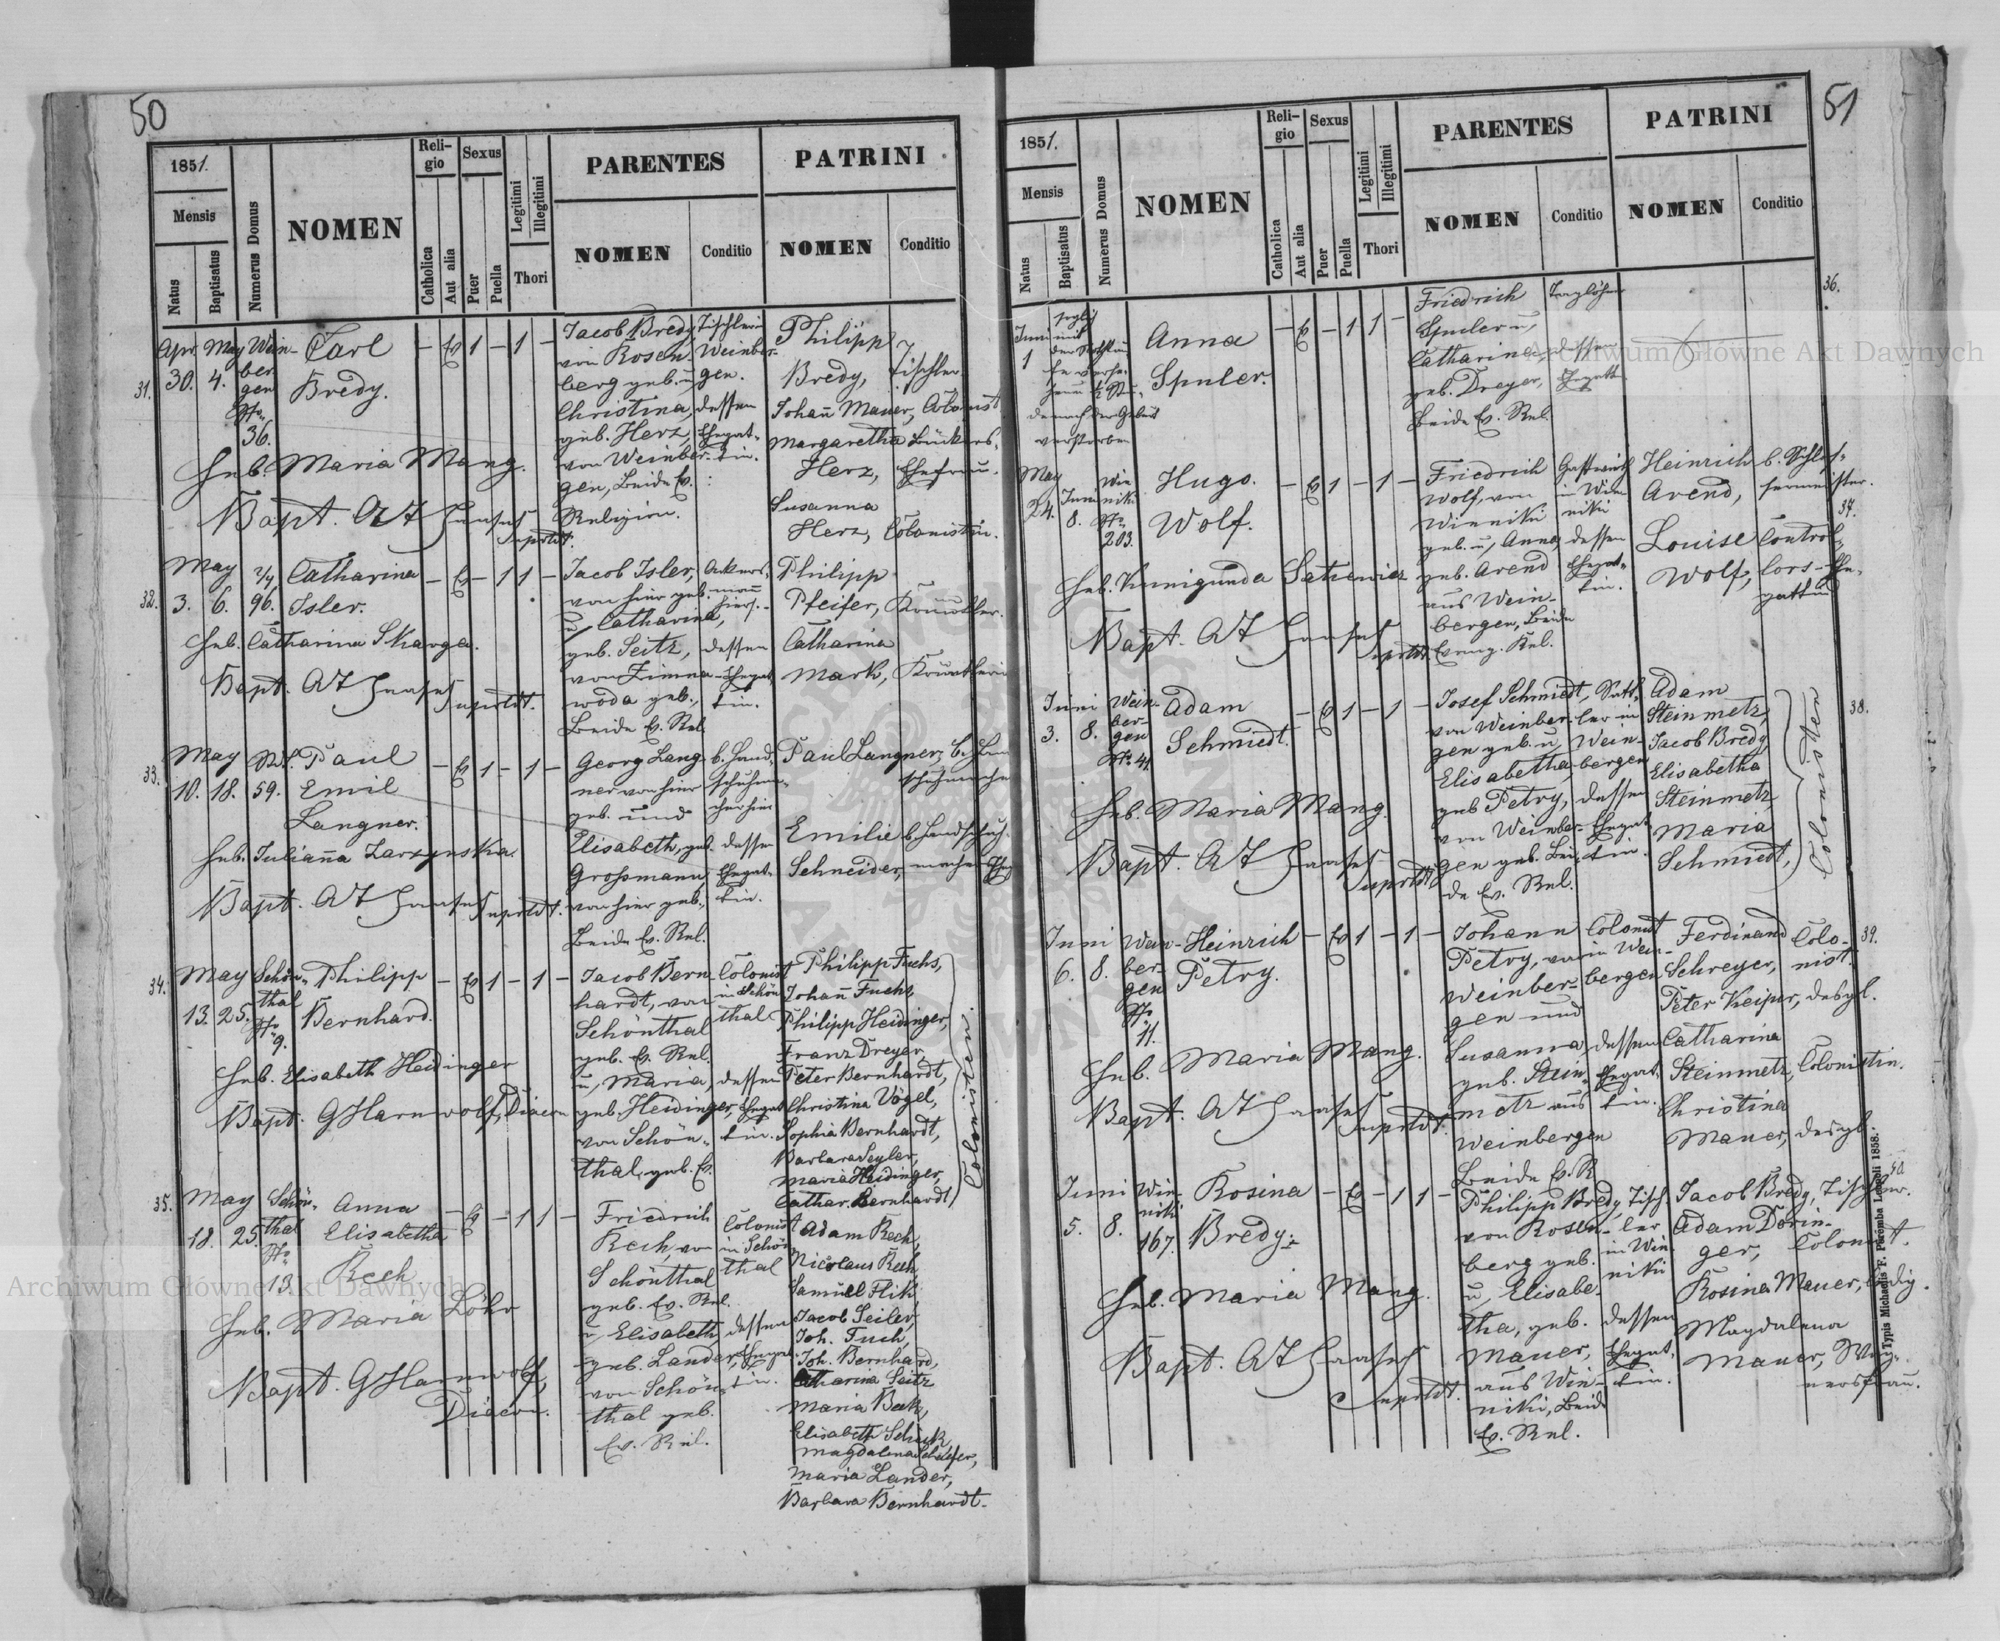 50
1851.
Mensis
Natus
Baptisatus
Numerus Domus
NOMEN
Reli-
gio
Catholica
Aut alia
Sexus
Puer
Puella
Legitimi
Illegitimi
Thori
PARENTES
NOMEN
Conditio
PATRINI
NOMEN
Conditio
31.
Apr. May Wein-
30. 4. ber
gen
No.
36.
Carl
Bredy.
– Ev 1 – 1 –
Jacob Bredy,
von Rosen-
berg geb. u,
Christina,
geb. Herz,
von Weinber-
gen, Beide Ev.
Religion.
Tischler in
Weinber-
gen.
dessen
Ehegat-
tin.
Philipp
Bredy, Tischler.
Johann Mauer, Colonist
Margaretha
Herz, Ehefrau.
Susanna
Herz, Colonistin.
Heb. Maria Mang.
Bapt. A T Haase
Suprtdt.
32.
May
3. 6. 96.
Catharina
Isler.
– Ev – 1 1 –
Jacob Isler,
von hier geb.
u, Catharina,
geb. Seitz,
von Zimna-
woda geb.,
Beide Ev. Rel.
Ackers-
mann
hiers.
dessen
Ehegat-
tin.
Philipp
Pfeifer,
Catharina
Mark,
Heb. Catharina Skarga.
Bapt. A T Haase Suprtdt.
33.
May
10. 18. 59.
Paul
Emil
Langner.
– Ev 1 – 1 –
Georg Lang-
ner von hier
geb. und
Elisabeth, geb.
Grossmann,
von hier geb.,
Beide Ev. Rel.
b. Hand-
schuhma-
cher hier
dessen
Ehegat-
tin.
Paul Langner, b. Han
schuhmache
Emilie b. Handschuh-
Schneider, macher
Heb. Julianna Zarzynska.
Bapt. A T Haase Suprtdt.
34.
May Schön-
13. 25. thal
No.
9.
Philipp
Bernhard.
– Ev 1 – 1 –
Jacob Bern-
hardt, von
Schönthal
geb. Ev. Rel.
u, Maria,
geb. Heidinger,
von Schön-
thal, geb. Ev.
Colonist
in Schön
thal
dessen
Ehegat
tin.
Philipp Fuchs,
Johann Fuchs,
Philipp Heidinger,
Franz Dreyer,
Peter Bernhardt,
Christina Vogel,
Sophia Bernhardt,
Barbara Seyler,
Maria Heidinger,
Cathar. Bernhardt
Colonisten.
Heb. Elisabeth Heidinger
Bapt. G Harnwolf, Diacon
35.
May Schön-
18. 25. thal
No.
13.
Anna
Elisabetha
Rech
– Ev – 1 1 –
Friedrich
Rech, von
Schönthal
geb. Ev. Rel.
u, Elisabeth,
geb. Lander,
von Schön-
thal geb.
Ev. Rel.
Colonist
in Schön
thal
dessen
Ehegat-
tin.
Adam Rech,
Nicolaus Rech,
Samuel Flik,
Jacob Seiler,
Joh. Fuch,
Joh. Bernhard,
Catharina Seitz
Maria Beck,
Elisabeth Schick,
Magdalena Schäfer,
Maria Lander,
Barbara Bernhardt.
Heb. Maria Löhr
Bapt. G Harnwolf,
Diacon.
51
1851.
Mensis
Natus
Baptisatus
Numerus Domus
NOMEN
Reli-
gio
Catholica
Aut alia
Sexus
Puer
Puella
Legitimi
Illegitimi
Thori
PARENTES
NOMEN
Conditio
PATRINI
NOMEN
Conditio
36.
Juni
1
mit
der Nothtau-
fe verse-
hen u. ½ Stu-
de nach der Geburt
verstorben
Anna
Spuler.
– Ev – 1 1 –
Friedrich
Spuler u,
Catharina,
geb. Dreyer,
Beide Ev. Rel.
Taglöhner
dessen
Ehegatt.
37.
May
24. Juni
8.
Win
niki
No.
203.
Hugo.
Wolf.
– Ev 1 – 1 –
Friedrich
Wolf, von
Winniki
geb. u, Anna,
geb. Arend
aus Wein-
bergen, Beide
Evang. Rel.
Gastwirth
in Win
niki
dessen
Ehegat-
tin.
Heinrich b. Schlos-
Arend, sermeister.
Louise Control-
Wolf, lors-Ehe-
gattin
Heb. Kunigunda
Bapt. A T Haase
Suprtdt.
38.
Juni Wein-
3. 8. ber-
gen
No. 41.
Adam
Schmiedt.
– Ev 1 – 1 –
Josef Schmiedt,
von Weinber-
gen geb. u,
Elisabetha,
geb. Petry,
von Weinber-
gen geb. Bei-
de Ev. Rel.
Satt-
ler in
Wein-
bergen
dessen
Ehegat
tin.
Adam
Steinmetz,
Jacob Bredy,
Elisabetha
Steinmetz
Maria
Schmiedt,
Colonisten.
Heb. Maria Mang.
Bapt. A T Haase
Suprtdt.
39.
Juni Wein-
6. 8. ber-
gen
No.
11.
Heinrich
Petry.
– Ev 1 – 1 –
Johann
Petry, von
Weinber-
gen und
Susanna
geb. Stein-
metz aus
Weinbergen
Beide Ev. R
Colonist
in Wein-
bergen
dessen
Ehegat-
tin.
Ferdinand Colo-
Schreyer, nist.
Peter Keiper, desgl.
Catharina
Steinmetz, Colonistin.
Christina
Mauer, desgl.
Heb. Maria Mang.
Bapt. A T Haase
Suprtdt.
40
Juni Win-
5. 8. niki
167.
Rosina
Bredy.
– Ev – 1 1 –
Philipp Bredy,
von Rosen-
berg geb.
u, Elisabe-
tha, geb.
Mauer,
aus Win-
niki, Beide
Ev. Rel.
Tisch
ler
in Win
niki
dessen
Ehegat-
tin.
Jacob Bredy, Tischler.
Adam Dorin-
ger, Colonist.
Rosina Mauer, ledig.
Magdalena
Mauer, Wag-
nersfrau.
Heb. Maria Mang.
Bapt. A T Haase
Suprtdt.
Typis Michaelis F. Poremba Leopoli 1858.
Archiwum Główne Akt Dawnych
Archiwum Główne Akt Dawnych